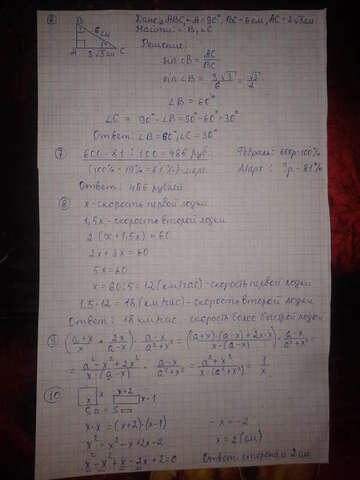 ⑥ Дано: △ABC, ∠A=90°, BC=6см, AC=3√3см
Найти: ∠B, ∠C
B
6см
A 3√3см C
Решение:
sin ∠B = AC/BC
sin ∠B = 3√3/6 = √3/2
∠B = 60°
∠C = 90°-∠B=90°-60°=30°
Ответ: ∠B=60°, ∠C=30°
⑦ 600·81:100=486 руб. Февраль: 600р-100%
(100%-19%=81%) март. Март: ?р-81%
Ответ: 486 рублей
⑧ x-скорость первой лодки
1,5x-скорость второй лодки
2(x+1,5x)=60
2x+3x=60
5x=60
x=60:5=12 (км/час)-скорость первой лодки
1,5·12=18 (км/час)-скорость второй лодки
Ответ: 18 км/час-скорость более быстрой лодки
⑨ (a+x/x + 2x/a-x) · a-x/a²+x² = ((a+x)·(a-x)+2x·x/x·(a-x)) · a-x/a²+x² =
= a²-x²+2x²/x·(a-x) · a-x/a²+x² = a²+x²/x·(a²+x²) = 1/x
⑩ x x x+2 x-1
S□ = S▭
x·x=(x+2)·(x-1) -x=-2
x²=x²-x+2x-2 x=2(см)
x²-x²+x-2x+2=0 Ответ: сторона 2см